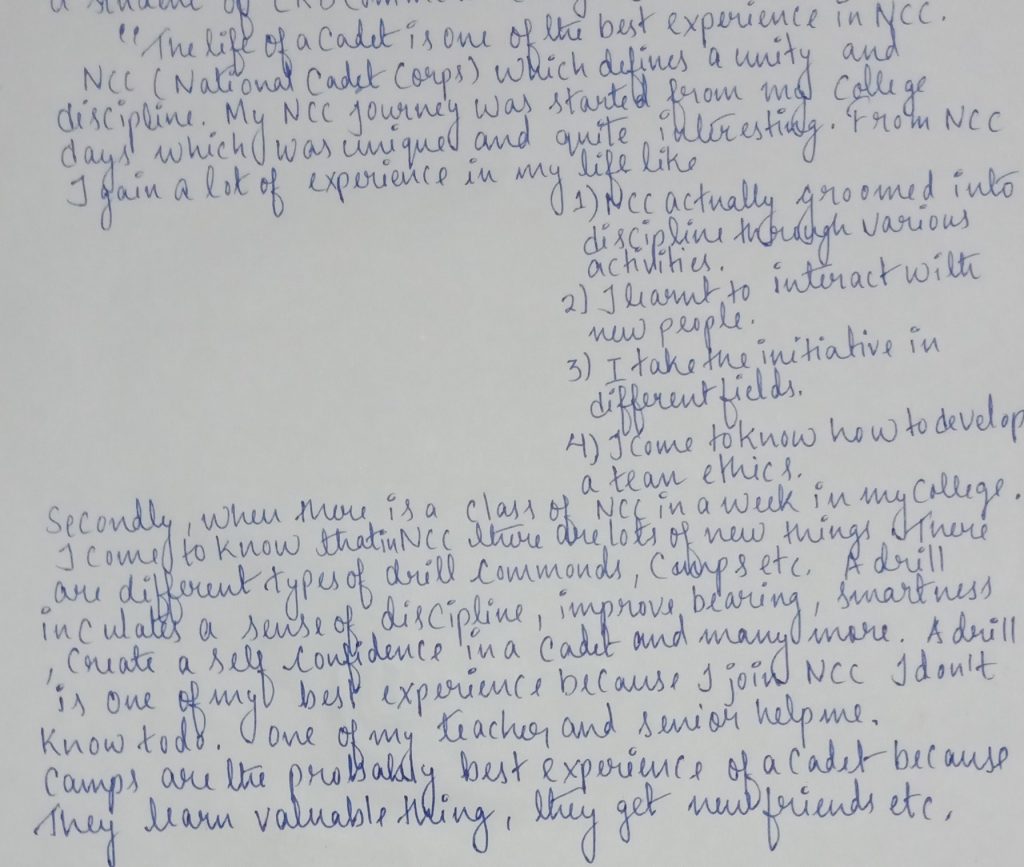 a student of
"The life of a Cadet is one of the best experience in NCC.
NCC (National Cadet Corps) which defines a unity and
discipline. My NCC journey was started from my College
days which was unique and quite interesting. From NCC
I gain a lot of experience in my life like
1) NCC actually groomed into
discipline through various
activities.
2) I learnt to interact with
new people.
3) I take the initiative in
different fields.
4) I come to know how to develop
a team ethics.
Secondly, when there is a class of NCC in a week in my College.
I come to know that in NCC there are lots of new things. There
are different types of drill commonds, Camps etc. A drill
inculates a sense of discipline, improve bearing, smartness
, Create a self confidence in a Cadet and many more. A drill
is one of my best experience because I join NCC I don't
know to do. One of my teacher and senior help me.
Camps are the probably best experience of a Cadet because
They learn valuable thing, they get new friends etc.